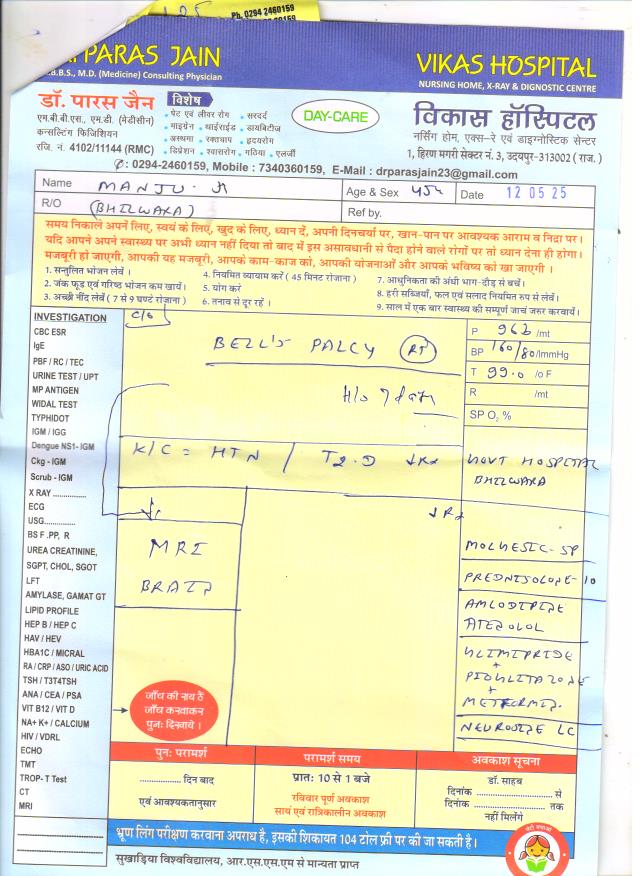 Ph. 0294 2460159
PARAS JAIN
VIKAS HOSPITAL
M.B.B.S., M.D. (Medicine) Consulting Physician
NURSING HOME, X-RAY & DIGNOSTIC CENTRE
डॉ. पारस जैन
विशेष
DAY-CARE
विकास हॉस्पिटल
एम.बी.बी.एस., एम.डी. (मेडीसीन)
• पेट एवं लीवर रोग • सरदर्द
कन्सल्टिंग फिजिशियन
• माइग्रेन • थाईराईड • डायबिटीज
नर्सिंग होम, एक्स-रे एवं डाइग्नोस्टिक सेन्टर
रजि. नं. 4102/11144 (RMC)
• अस्थमा • रक्तचाप • हृदयरोग
• डिप्रेशन • श्वासरोग • गठिया • एलर्जी
1, हिरण मगरी सेक्टर नं. 3, उदयपुर-313002 ( राज. )
✆: 0294-2460159, Mobile : 7340360159, E-Mail : drparasjain23@gmail.com
Name MANJU. Jt
Age & Sex 45y
Date 12 05 25
R/O (BHILWARA)
Ref by.
समय निकाले अपने लिए, स्वयं के लिए, खुद के लिए, ध्यान दें, अपनी दिनचर्या पर, खान-पान पर आवश्यक आराम व निद्रा पर।
यदि आपने अपने स्वास्थ्य पर अभी ध्यान नहीं दिया तो बाद में इस असावधानी से पैदा होने वाले रोगों पर तो ध्यान देना ही होगा।
मजबूरी हो जाएगी, आपकी यह मजबूरी, आपके काम-काज को, आपकी योजनाओं और आपके भविष्य को खा जाएगी ।
1. सन्तुलित भोजन लेवें ।
4. नियमित व्यायाम करें ( 45 मिनट रोजाना )
7. आधुनिकता की अंधी भाग-दौड़ से बचें।
2. जंक फूड एवं गरिष्ठ भोजन कम खायें।
5. योग करें
8. हरी सब्जियाँ, फल एवं सलाद नियमित रुप से लेवें।
3. अच्छी नींद लेवें ( 7 से 9 घण्टे रोजाना )
6. तनाव से दूर रहें ।
9. साल में एक बार स्वास्थ्य की सम्पूर्ण जाचं जरुर करवायें।
INVESTIGATION
CBC ESR
IgE
PBF / RC / TEC
URINE TEST / UPT
MP ANTIGEN
WIDAL TEST
TYPHIDOT
IGM / IGG
Dengue NS1- IGM
Ckg - IGM
Scrub - IGM
X RAY ..............
ECG
USG..............
BS F .PP, R
UREA CREATININE,
SGPT, CHOL, SGOT
LFT
AMYLASE, GAMAT GT
LIPID PROFILE
HEP B / HEP C
HAV / HEV
HBA1C / MICRAL
RA / CRP / ASO / URIC ACID
TSH / T3T4TSH
ANA / CEA / PSA
VIT B12 / VIT D
NA+ K+ / CALCIUM
HIV / VDRL
ECHO
TMT
TROP- T Test
CT
MRI
C/o
BELL'S PALCY (RT)
H/o 7 days
K/C = HTN / T2.D ↓Rx
↓Rx
MRI
BRAIN
P 96 /mt
BP 160/80/mmHg
T 99.0 /o F
R /mt
SP O₂ %
GOVT HOSPITAL
BHILWARA
MOLNESIC-SP
PREDNISOLONE-10
AMLODIPINE
ATENOLOL
GLIMIPRIDE
+
PIOGLITAZONE
+
METFORMIN
NEUROSINE LC
जाँच की राय है
जाँच करवाकर
पुनः दिखावे ।
पुनः परामर्श
परामर्श समय
अवकाश सूचना
.............. दिन बाद
एवं आवश्यकतानुसार
प्रातः 10 से 1 बजे
रविवार पूर्ण अवकाश
सायं एवं रात्रिकालीन अवकाश
डॉ. साहब
दिनांक .................. से
दिनांक .................. तक
नहीं मिलेंगे
भ्रूण लिंग परीक्षण करवाना अपराध है, इसकी शिकायत 104 टोल फ्री पर की जा सकती है।
सुखाड़िया विश्वविद्यालय, आर.एस.एस.एम से मान्यता प्राप्त